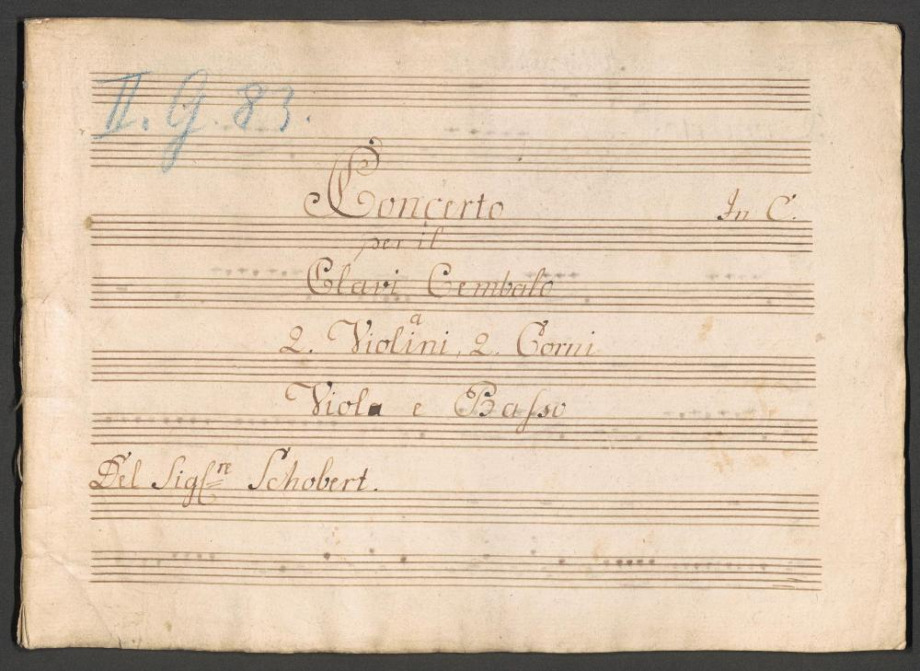 II. G. 83.
Concerto In C.
per il
Clavi Cembalo
a
2. Violini, 2. Corni
Viola e Basso
Del Sigre Schobert.